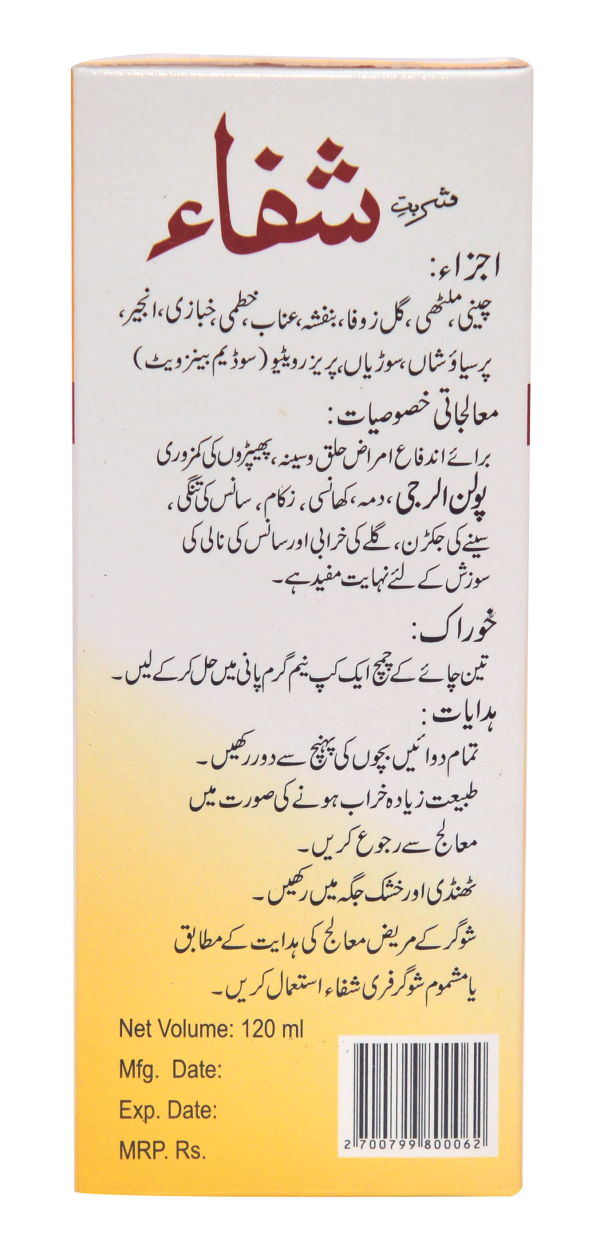 شربتِ شفاء
اجزاء:
چینی، ملٹھی، گل زوفا، بنفشہ، عناب، خطمی، خبازی، انجیر،
پرسیاؤشاں، سوڑیاں، پریزرویٹیو (سوڈیم بینزویٹ)
معالجاتی خصوصیات:
برائے اندفاع امراض حلق و سینہ، پھیپڑوں کی کمزوری
پولن الرجی، دمہ، کھانسی، زکام، سانس کی تنگی،
سینے کی جکڑن، گلے کی خرابی اور سانس کی نالی کی
سوزش کے لئے نہایت مفید ہے۔
خوراک:
تین چائے کے چمچ ایک کپ نیم گرم پانی میں حل کر کے لیں۔
ہدایات:
تمام دوائیں بچوں کی پہنچ سے دور رکھیں۔
طبیعت زیادہ خراب ہونے کی صورت میں
معالج سے رجوع کریں۔
ٹھنڈی اور خشک جگہ میں رکھیں۔
شوگر کے مریض معالج کی ہدایت کے مطابق
یا مشموم شوگر فری شفاء استعمال کریں۔
Net Volume: 120 ml
Mfg. Date:
Exp. Date:
MRP. Rs.
2 700799 800062